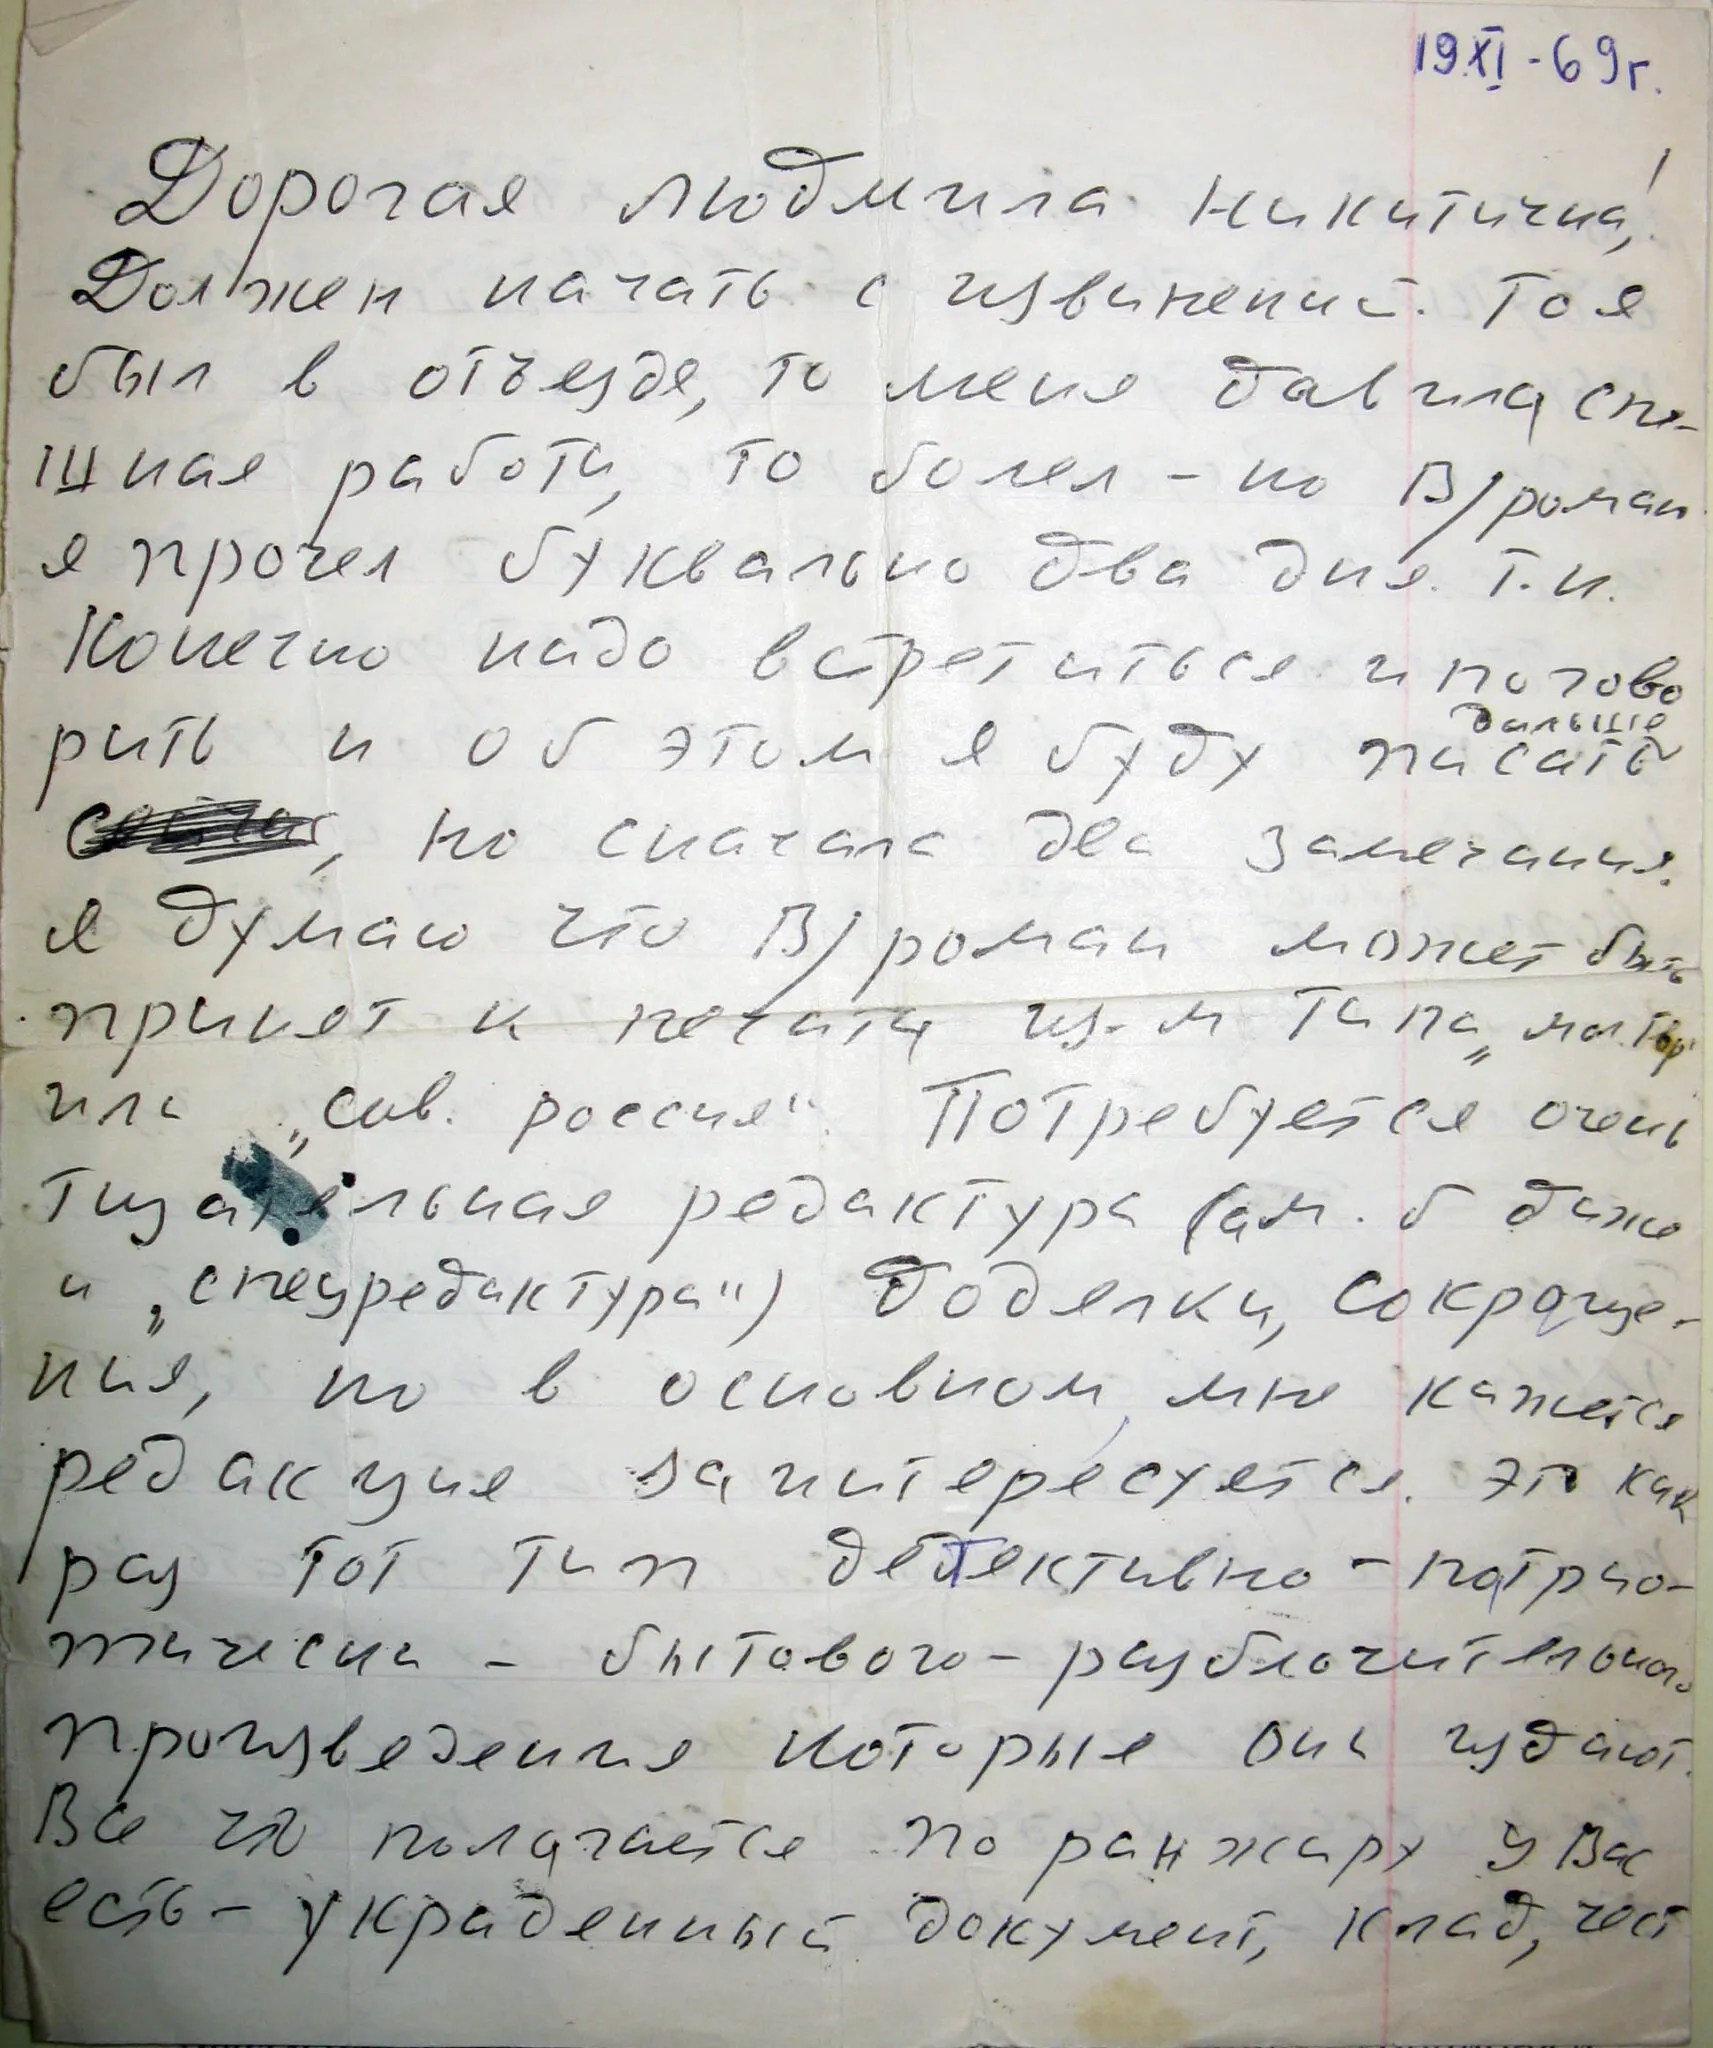 19 XI - 69 г.
Дорогая Людмила Никитична!
Должен начать с извинений. То я
был в отъезде, то меня давила спе-
шная работа, то болел - но В/роман
я прочел буквально два дня т.н.
Конечно надо встретиться и погово
рить и об этом я буду писать дальше
сейчас, но сначала два замечания.
Я думаю что В/роман может быть
принят к печати из-м типа „мол.гвар"
или „сов. россия". Потребуется очень
тщательная редактура (а м.б даже
и „спецредактура") доделки, сокраще-
ния, но в основном, мне кажется
редакция заинтересуется. Это как
раз тот тип детективно-патрио-
тически-бытового-разблочительного
произведения которые они издают.
Все что полагается по ранжиру у Вас
есть - украденный документ, клад, чест